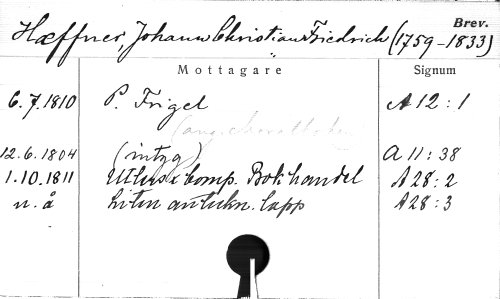 Brev.
Hæffner, Johann Christian Friedrich (1759-1833)
Mottagare Signum
6.7.1810 P. Frigel A12:1
(ang.
12.6.1804 (intyg) A11:38
1.10.1811 & comp. Bokhandel A28:2
u.å liten antekn. lapp A28:3